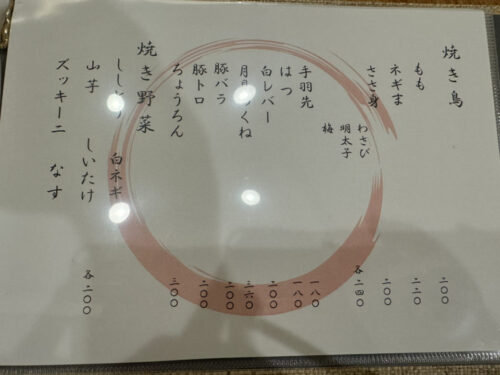 焼き鳥
もも 二〇〇
ネギま 二二〇
ささ身 二〇〇
わさび
明太子 各二四〇
梅
手羽先 一八〇
はつ 一八〇
白レバー
月見つくね 三六〇
豚バラ 二〇〇
豚トロ 二〇〇
ちょうろん 三〇〇
焼き野菜
ししとう 白ネギ
山芋 しいたけ 各二〇〇
ズッキーニ なす